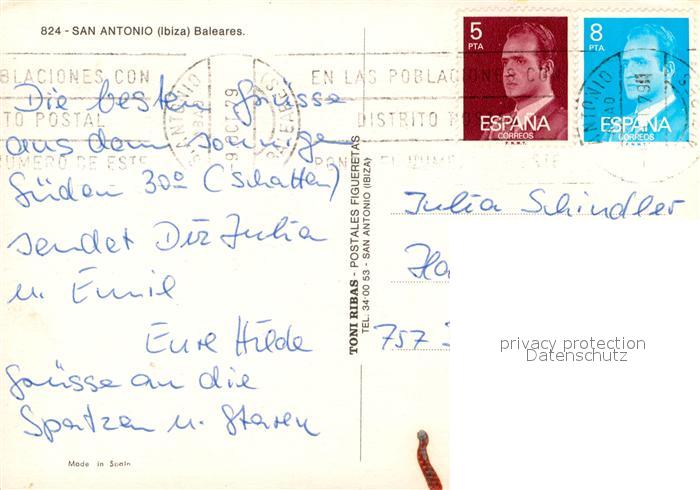 824 - SAN ANTONIO (Ibiza) Baleares.
5
PTA
ESPAÑA
CORREOS
F.N.M.T.
8
PTA
ESPAÑA
CORREOS
F.N.M.T.
BLACIONES CON
TO POSTAL
NUMERO DE ESTE
ANTONIO
BALEARES
EN LAS POBLACIONES CO
DISTRITO PO
PON EL NUME STE
Die besten Grüsse
aus dem sonnigen
Süden 30° (Schatten)
sendet Dir Julia
u. Emil
Eure Hilde
Grüsse an die
Spatzen u. Staren
Made in Spain
TONI RIBAS - POSTALES FIGUERETAS
TEL. 34 00 53 - SAN ANTONIO (IBIZA)
Julia Schindler
757
privacy protection
Datenschutz